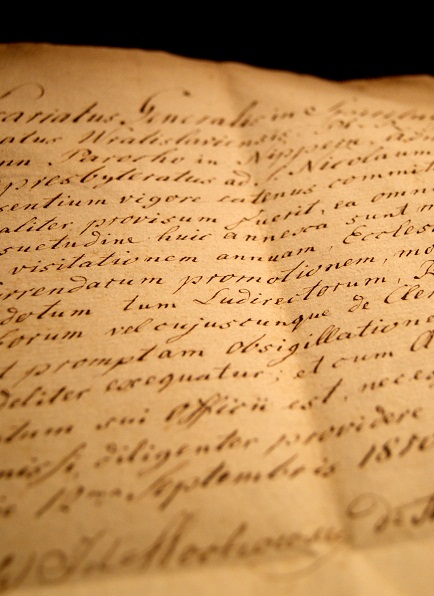 cariatus Generalis in
atus Wratislaviensis
Parocho in Nippern,
presbyteratus ad S. Nicolaum
sentium vigore eatenus commit
aliter provisum fuerit, ea omn
suetudine huic annexa sunt m
visitationem annuam, Eccles
rrendarum promotionem, mo
dotum tum Ludirectorum,
torum vel cujuscunque de Cler
t promptam obsigillatione
deliter exequatur; et cum
tum sui Officii est, neces
missi, diligenter providere
12ma Septembris 181